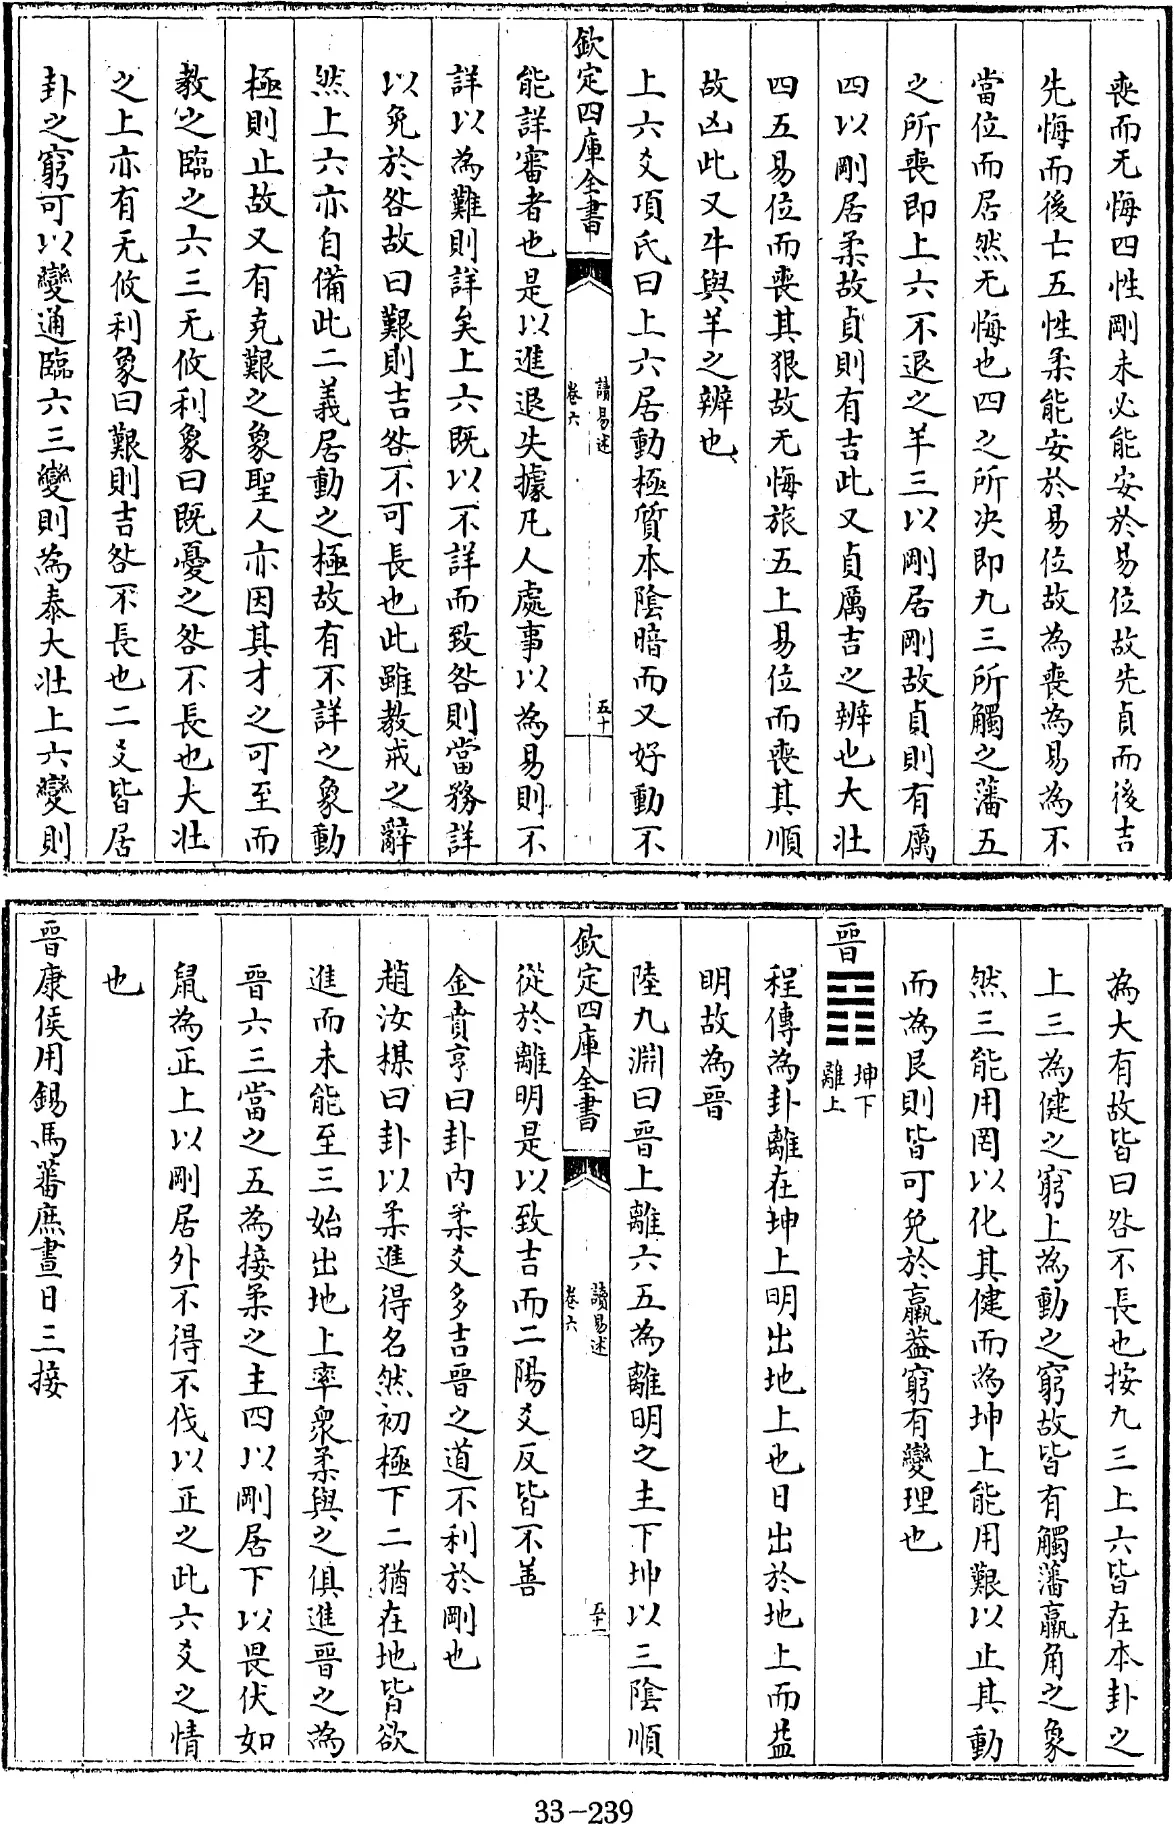 喪而无悔四性剛未必能安於易位故先貞而後吉
先悔而後亡五性柔能安於易位故為喪為易為不
當位而居然无悔也四之所决即九三所觸之藩五
之所喪即上六不退之羊三以剛居剛故貞則有厲
四以剛居柔故貞則有吉此又貞厲吉之辨也大壯
四五易位而喪其狠故无悔旅五上易位而喪其順
故凶此又牛與羊之辨也
上六爻項氏曰上六居動極質本陰暗而又好動不
欽定四庫全書
讀易述
卷六
五十
能詳審者也是以進退失據凡人處事以為易則不
詳以為難則詳矣上六既以不詳而致咎則當務詳
以免於咎故曰艱則吉咎不可長也此雖教戒之辭
然上六亦自備此二義居動之極故有不詳之象動
極則止故又有克艱之象聖人亦因其才之可至而
教之臨之六三无攸利象曰既憂之咎不長也大壯
之上亦有无攸利象曰艱則吉咎不長也二爻皆居
卦之窮可以變通臨六三變則為泰大壯上六變則
為大有故皆曰咎不長也按九三上六皆在本卦之
上三為健之窮上為動之窮故皆有觸藩羸角之象
然三能用罔以化其健而為坤上能用艱以止其動
而為艮則皆可免於羸益窮有變理也
晉䷢坤下離上
程傳為卦離在坤上明出地上也日出於地上而益
明故為晉
陸九淵曰晉上離六五為離明之主下坤以三陰順
欽定四庫全書
讀易述
卷六
五十一
從於離明是以致吉而二陽爻反皆不善
金賁亨曰卦内柔爻多吉晉之道不利於剛也
趙汝楳曰卦以柔進得名然初極下二猶在地皆欲
進而未能至三始出地上率衆柔與之俱進晉之為
晉六三當之五為接柔之主四以剛居下以畏伏如
鼠為正上以剛居外不得不伐以正之此六爻之情
也
晉康侯用錫馬蕃庶晝日三接
33-239